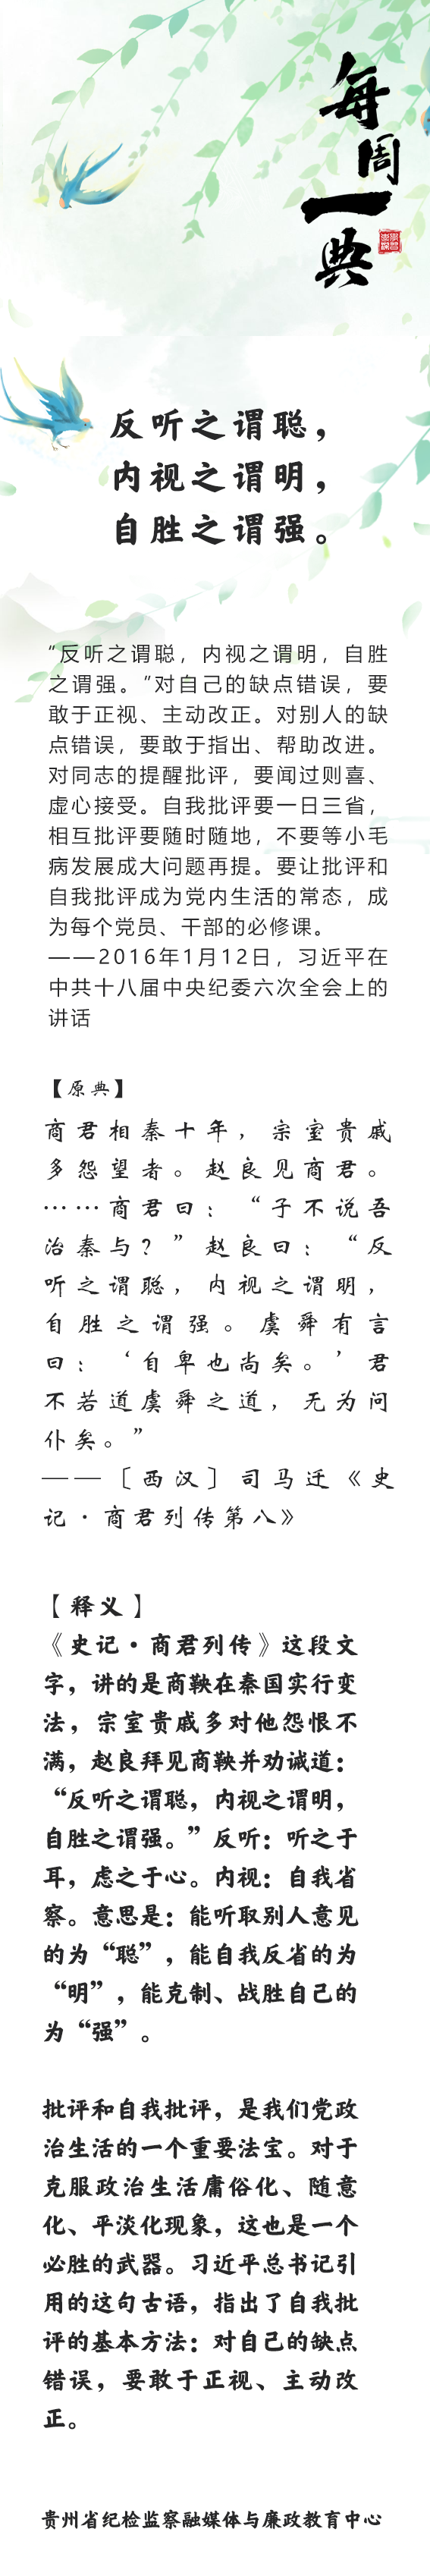 每周一典
反听之谓聪，
内视之谓明，
自胜之谓强。
“反听之谓聪，内视之谓明，自胜
之谓强。”对自己的缺点错误，要
敢于正视、主动改正。对别人的缺
点错误，要敢于指出、帮助改进。
对同志的提醒批评，要闻过则喜、
虚心接受。自我批评要一日三省，
相互批评要随时随地，不要等小毛
病发展成大问题再提。要让批评和
自我批评成为党内生活的常态，成
为每个党员、干部的必修课。
——2016年1月12日，习近平在
中共十八届中央纪委六次全会上的
讲话
【原典】
商君相秦十年，宗室贵戚
多怨望者。赵良见商君。
……商君曰：“子不说吾
治秦与？”赵良曰：“反
听之谓聪，内视之谓明，
自胜之谓强。虞舜有言
曰：‘自卑也尚矣。’君
不若道虞舜之道，无为问
仆矣。”
——［西汉］司马迁《史
记·商君列传第八》
【释义】
《史记·商君列传》这段文
字，讲的是商鞅在秦国实行变
法，宗室贵戚多对他怨恨不
满，赵良拜见商鞅并劝诫道：
“反听之谓聪，内视之谓明，
自胜之谓强。”反听：听之于
耳，虑之于心。内视：自我省
察。意思是：能听取别人意见
的为“聪”，能自我反省的为
“明”，能克制、战胜自己的
为“强”。
批评和自我批评，是我们党政
治生活的一个重要法宝。对于
克服政治生活庸俗化、随意
化、平淡化现象，这也是一个
必胜的武器。习近平总书记引
用的这句古语，指出了自我批
评的基本方法：对自己的缺点
错误，要敢于正视、主动改
正。
贵州省纪检监察融媒体与廉政教育中心